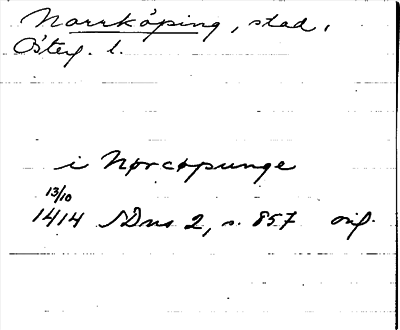 Norrköping, stad,
Österg. l.
i Norcopunge
13/10
1414 SDns 2, s. 857 orig.